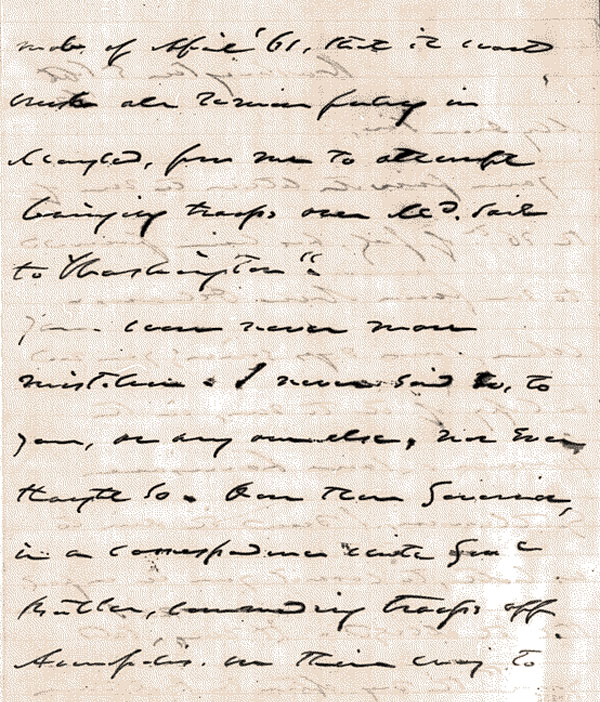 mob, of April '61, that it would
make all Union feeling in
Maryland, for me to attempt
bringing troops over Md. Soil
to Washington".
You were never more
mistaken. I never said so, to
you, or any one else, nor even
thought so. But then Governor,
in a correspondence with Gen'l
Butler, commanding troops off
Annapolis. on their way to